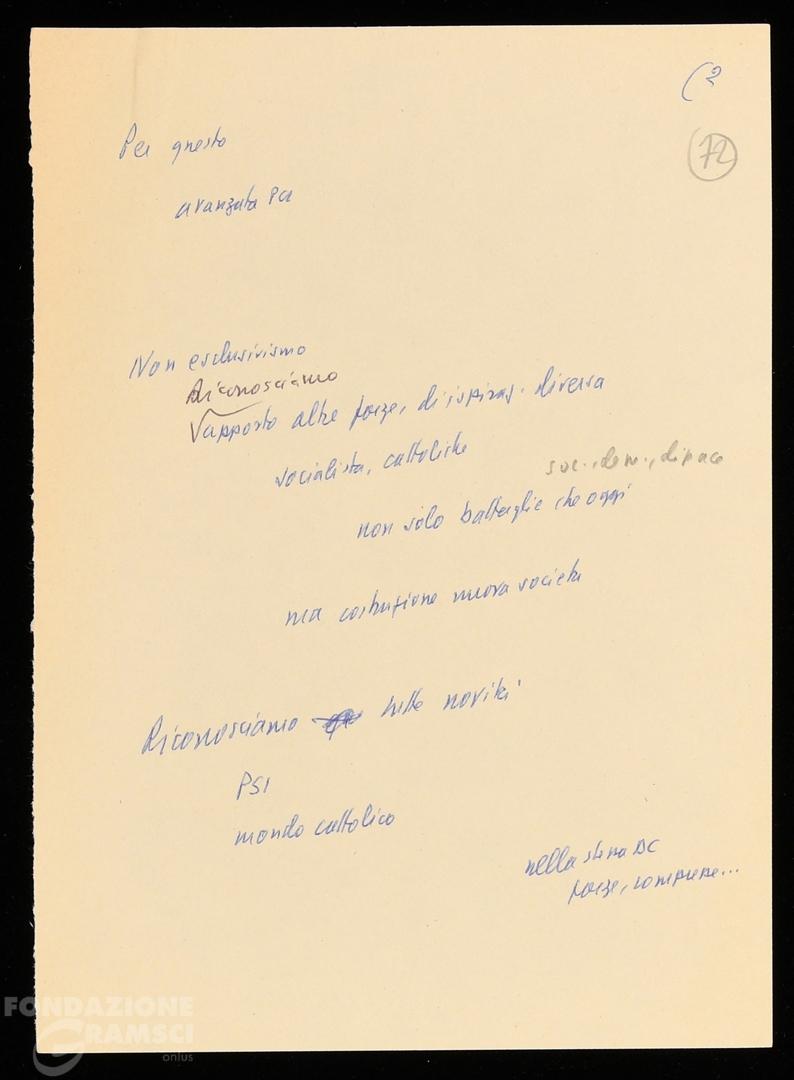 (2
72
Per questo
avanzata PCI
Non esclusivismo
Riconosciamo
apporto altre forze, di ispiraz. diversa
socialista, cattoliche
soc., dem., di pace
non solo battaglie che oggi
ma costruzione nuova società
Riconosciamo tutte novità
PSI
mondo cattolico
nella stessa DC
forze, comprese...
FONDAZIONE
GRAMSCI
onlus